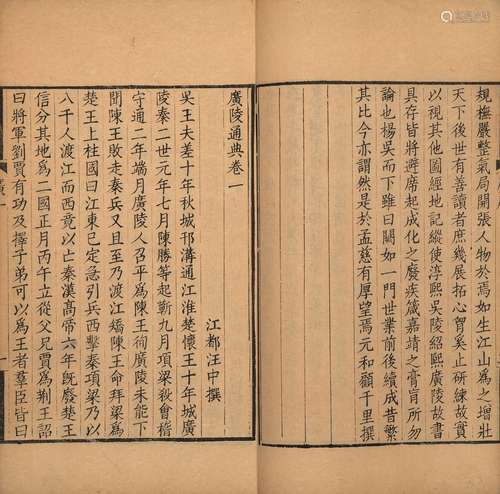 規橅嚴整氣局開張人物於焉如生江山爲之增壯
天下後世有善讀者庶幾展拓心胷奚止研練故實
以視其他圖經地記縱使淳熙吳陵紹熙廣陵故書
具存皆將避席起成化之廢疾箴嘉靖之膏肓所勿
論也楊吳而下雖曰闕如一門世業前後續成昔繁
其比今亦謂然是於孟慈有厚望焉元和顧千里撰
廣陵通典卷一
江都汪中撰
吳王夫差十年秋城邗溝通江淮楚懷王十年城廣
陵秦二世元年七月陳勝等起蘄九月項梁殺會稽
守通二年端月廣陵人召平爲陳王徇廣陵未能下
聞陳王敗走秦兵又且至乃渡江矯陳王命拜梁爲
楚王上柱國曰江東已定急引兵西擊秦項梁乃以
八千人渡江而西竟以亡秦漢高帝六年既廢楚王
信分其地爲二國正月丙午立從父兄賈爲荆王詔
曰將軍劉賈有功及擇子弟可以爲王者羣臣皆曰